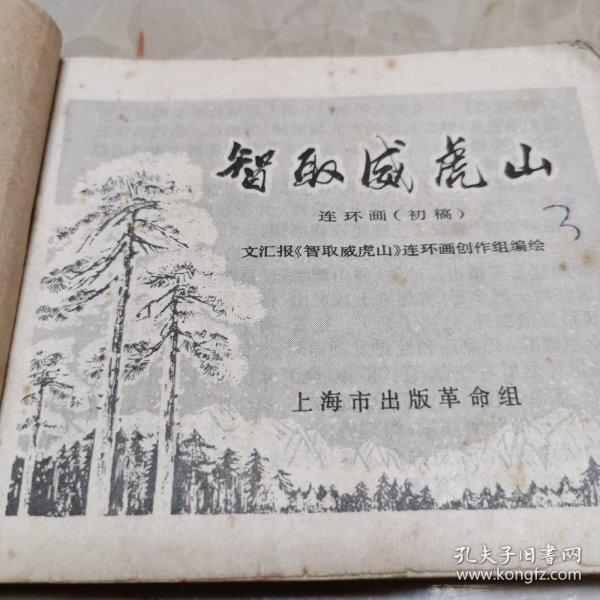 智取威虎山
连环画(初稿)
3
文汇报《智取威虎山》连环画创作组编绘
上海市出版革命组
孔夫子旧书网
www.kongfz.com